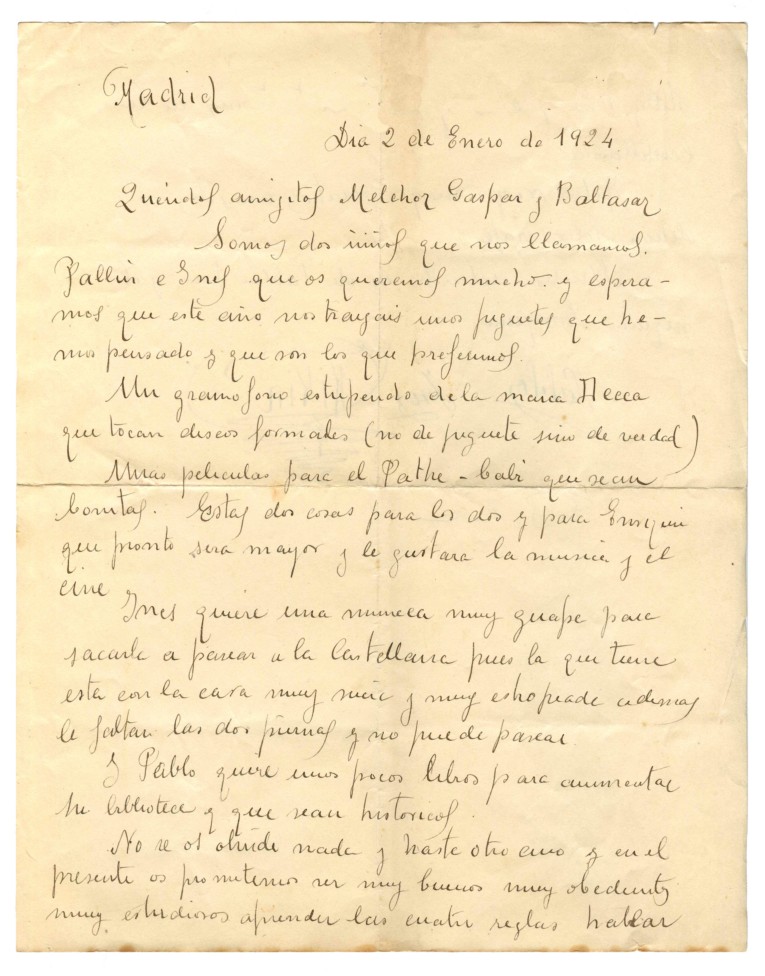 Madrid
Dia 2 de Enero de 1924
Queridos amigitos Melchor Gaspar y Baltasar
Somos dos niños que nos llamamos.
Pallin e Ines que os queremos mucho. y espera-
mos que este año nos traigais unos juguetes que he-
mos pensado y que son los que preferimos.
Un gramofono estupendo de la marca Decca
que tocan discos formales (no de juguete sino de verdad)
Unas peliculas para el Pathe-babi que sean
bonitas. Estas dos cosas para los dos y para Enriquin
que pronto sera mayor y le gustara la musica y el
cine
Ines quiere una muneca muy guapa para
sacarla a pasear a la Castellana pues la que tiene
esta con la cara muy sucia y muy estropeada ademas
le faltan las dos piernas y no puede pasear
Y Pablo quiere unos pocos libros para aumentar
su biblioteca y que sean historicos.
No se os olvide nada y hasta otro ano y en el
presente os prometemos ser muy buenos muy obedientes
muy estudiosos aprender las cuatro reglas hablar